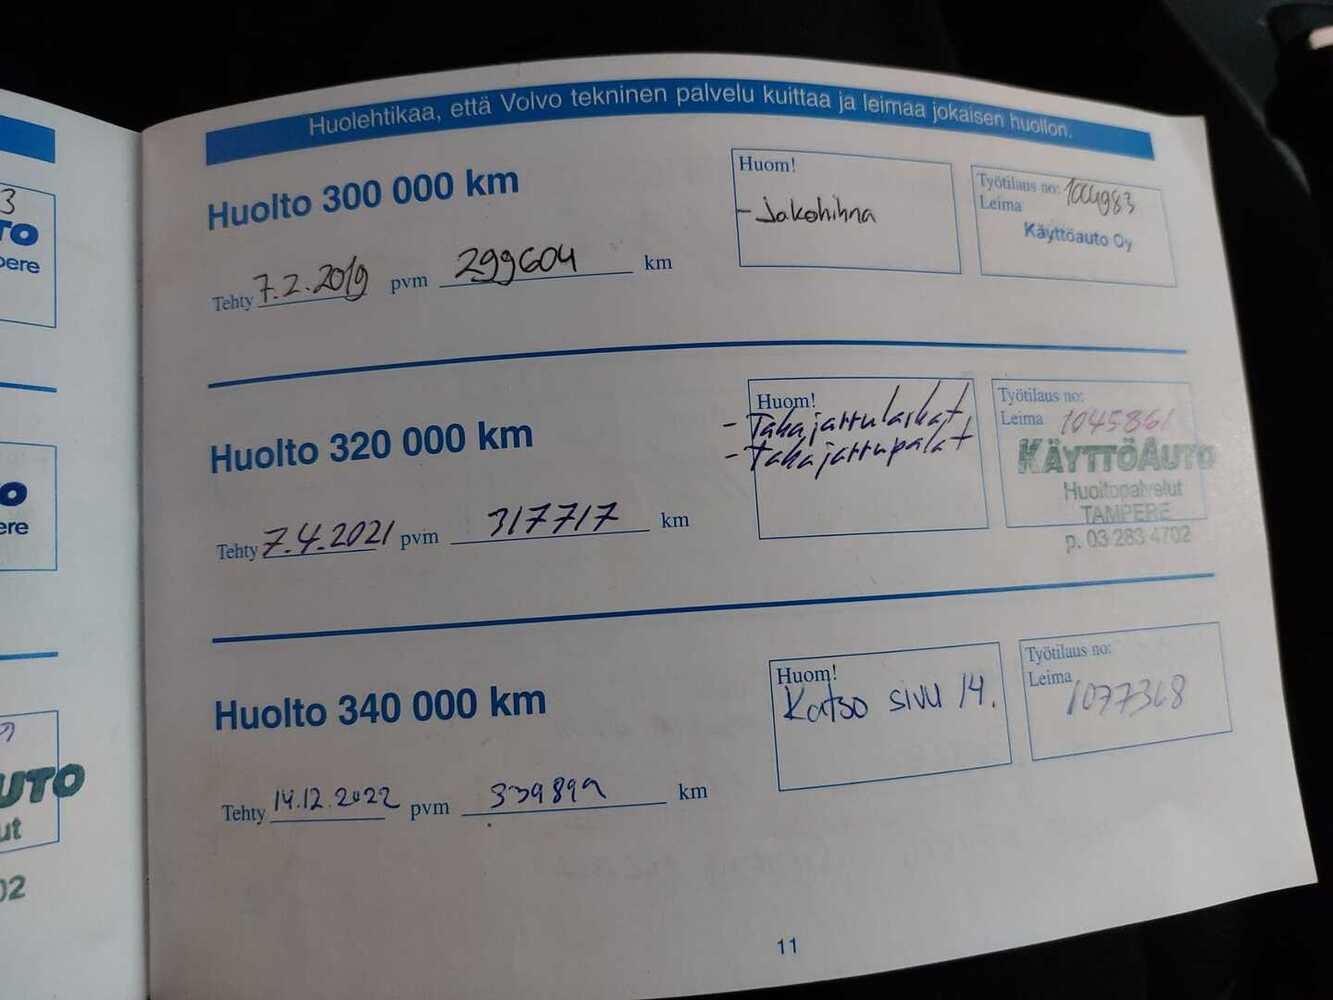 3
TO
pere
O
ere
UTO
ut
02
Huolehtikaa, että Volvo tekninen palvelu kuittaa ja leimaa jokaisen huollon.
Huolto 300 000 km
Tehty 7.2.2019 pvm 299604 km
Huom!
- Jakohihna
Työtilaus no: 1004983
Leima
Käyttöauto Oy
Huolto 320 000 km
Tehty 7.4.2021 pvm 317717 km
Huom!
- Takajarrulaikat
- Takajarrupalat
Työtilaus no:
Leima 1045861
KÄYTTÖAUTO
Huoltopalvelut
TAMPERE
p. 03 283 4702
Huolto 340 000 km
Tehty 14.12.2022 pvm 339899 km
Huom!
Katso sivu 14.
Työtilaus no:
Leima 1077368
11